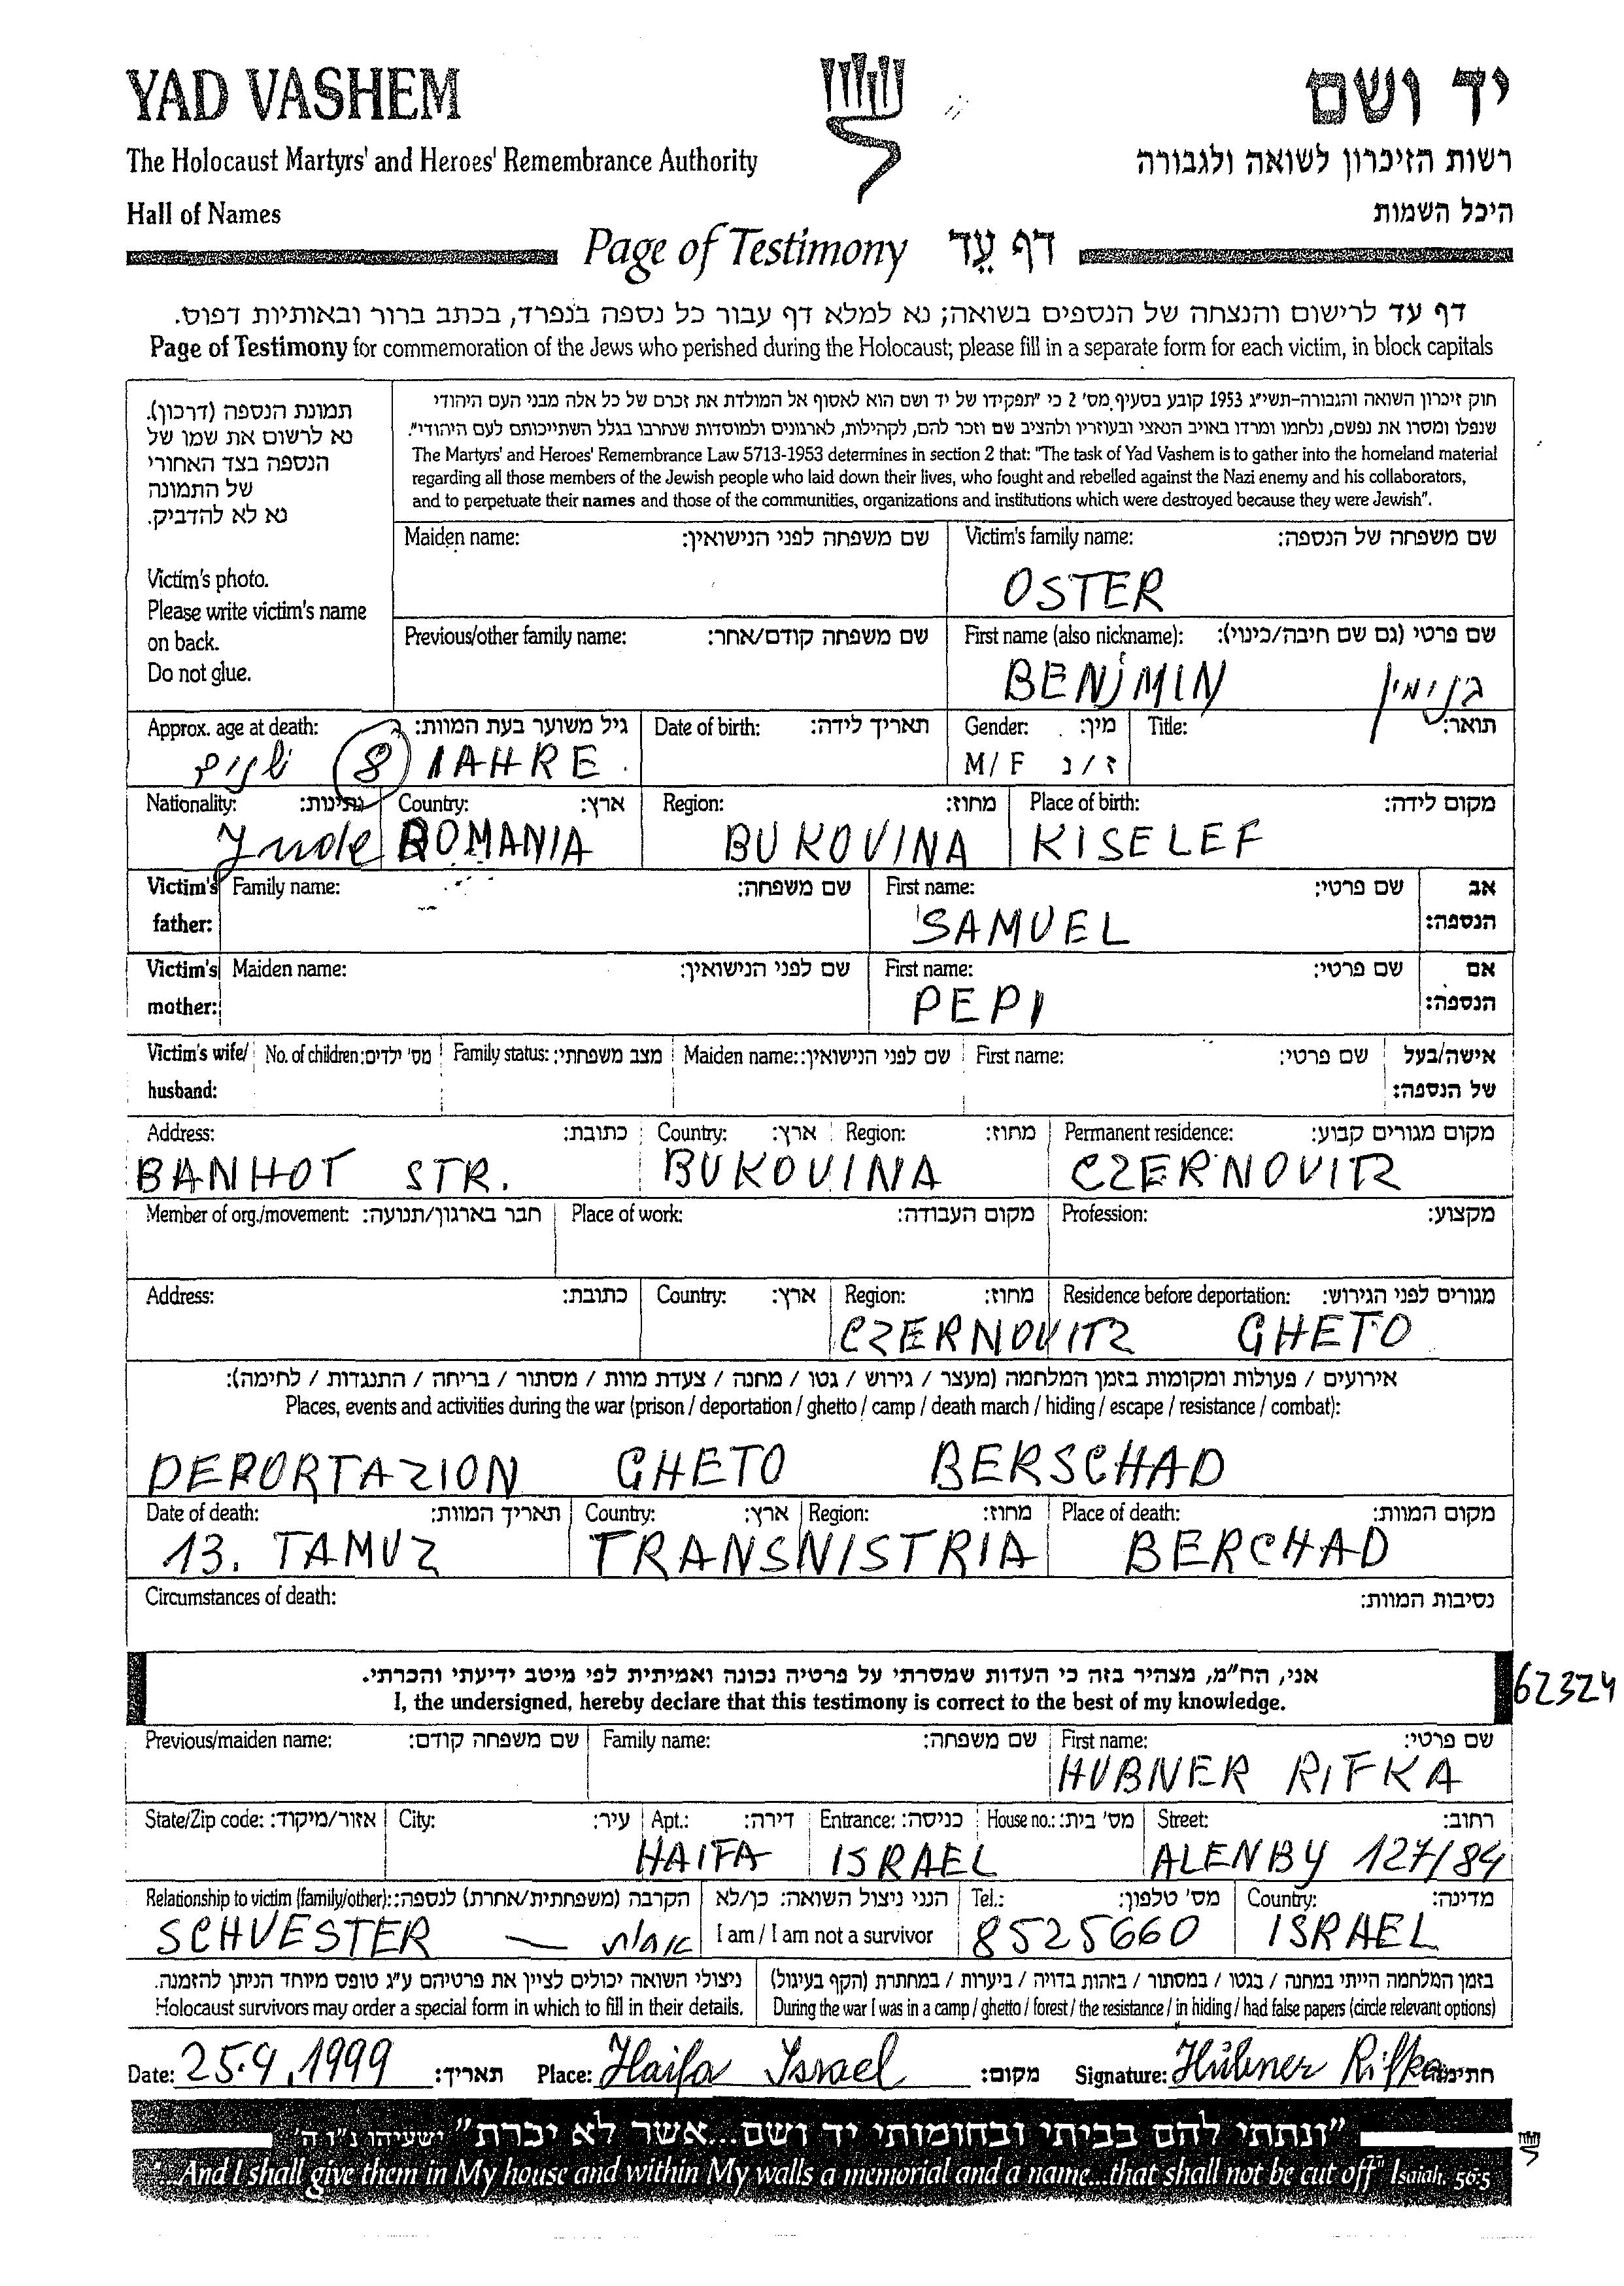 YAD VASHEM
יד ושם
The Holocaust Martyrs' and Heroes' Remembrance Authority
רשות הזיכרון לשואה ולגבורה
Hall of Names
היכל השמות
Page of Testimony דף עֵד
דף עד לרישום והנצחה של הנספים בשואה; נא למלא דף עבור כל נספה בנפרד, בכתב ברור ובאותיות דפוס.
Page of Testimony for commemoration of the Jews who perished during the Holocaust; please fill in a separate form for each victim, in block capitals
תמונת הנספה (דרכון).
נא לרשום את שמו של
הנספה בצד האחורי
של התמונה
נא לא להדביק.
Victim's photo.
Please write victim's name
on back.
Do not glue.
חוק זיכרון השואה והגבורה-תשי"ג 1953 קובע בסעיף מס' 2 כי "תפקידו של יד ושם הוא לאסוף אל המולדת את זכרם של כל אלה מבני העם היהודי
שנפלו ומסרו את נפשם, נלחמו ומרדו באויב הנאצי ובעוזריו ולהציב שם וזכר להם, לקהילות, לארגונים ולמוסדות שנחרבו בגלל השתייכותם לעם היהודי".
The Martyrs' and Heroes' Remembrance Law 5713-1953 determines in section 2 that: "The task of Yad Vashem is to gather into the homeland material
regarding all those members of the Jewish people who laid down their lives, who fought and rebelled against the Nazi enemy and his collaborators,
and to perpetuate their names and those of the communities, organizations and institutions which were destroyed because they were Jewish".
Maiden name: שם משפחה לפני הנישואין: Victim's family name: שם משפחה של הנספה:
OSTER
Previous/other family name: שם משפחה קודם/אחר: First name (also nickname): שם פרטי (גם שם חיבה/כינוי):
BENJMIN בנימין
Approx. age at death: גיל משוער בעת המוות: Date of birth: תאריך לידה: Gender: מין: Title: תואר:
8 IAHRE M/F ז/נ
Nationality: נתינות: Country: ארץ: Region: מחוז: Place of birth: מקום לידה:
Jude ROMANIA BUKOVINA KISELEF
Victim's father: Family name: שם משפחה: First name: שם פרטי: אב הנספה:
SAMUEL
Victim's mother: Maiden name: שם לפני הנישואין: First name: שם פרטי: אם הנספה:
PEPI
Victim's wife/ husband: No. of children: מס' ילדים: Family status: מצב משפחתי: Maiden name: שם לפני הנישואין: First name: שם פרטי: אישה/בעל של הנספה:
Address: כתובת: Country: ארץ: Region: מחוז: Permanent residence: מקום מגורים קבוע:
BANHOT STR. BUKOVINA CZERNOVITZ
Member of org./movement: חבר בארגון/תנועה: Place of work: מקום העבודה: Profession: מקצוע:
Address: כתובת: Country: ארץ: Region: מחוז: Residence before deportation: מגורים לפני הגירוש:
CZERNOVITZ GHETO
אירועים / פעולות ומקומות בזמן המלחמה (מעצר / גירוש / גטו / מחנה / צעדת מוות / מסתור / בריחה / התנגדות / לחימה):
Places, events and activities during the war (prison / deportation / ghetto / camp / death march / hiding / escape / resistance / combat):
DEPORTAZION GHETO BERSCHAD
Date of death: תאריך המוות: Country: ארץ: Region: מחוז: Place of death: מקום המוות:
13. TAMUZ TRANSNISTRIA BERCHAD
Circumstances of death: נסיבות המוות:
אני, הח"מ, מצהיר בזה כי העדות שמסרתי על פרטיה נכונה ואמיתית לפי מיטב ידיעתי והכרתי.
I, the undersigned, hereby declare that this testimony is correct to the best of my knowledge.
62324
Previous/maiden name: שם משפחה קודם: Family name: שם משפחה: First name: שם פרטי:
HUBNER RIFKA
State/Zip code: אזור/מיקוד: City: עיר: Apt.: דירה: Entrance: כניסה: House no.: מס' בית: Street: רחוב:
HAIFA ISRAEL ALENBY 127/84
Relationship to victim (family/other): הקרבה (משפחתית/אחרת) לנספה: הנני ניצול השואה: כן/לא Tel.: מס' טלפון: Country: מדינה:
SCHVESTER — אחות I am / I am not a survivor 8525660 ISRAEL
ניצולי השואה יכולים לציין את פרטיהם ע"ג טופס מיוחד הניתן להזמנה.
Holocaust survivors may order a special form in which to fill in their details.
בזמן המלחמה הייתי במחנה / בגטו / במסתור / בזהות בדויה / ביערות / במחתרת (הקף בעיגול)
During the war I was in a camp / ghetto / forest / the resistance / in hiding / had false papers (circle relevant options)
Date: 25.4.1999 תאריך: Place: Haifa Israel מקום: Signature: Hübner Rifka חתימה
"ונתתי להם בביתי ובחומותי יד ושם...אשר לא יכרת" ישעיהו נ"ו ה'
"...And I shall give them in My house and within My walls a memorial and a name...that shall not be cut off" Isaiah, 56:5